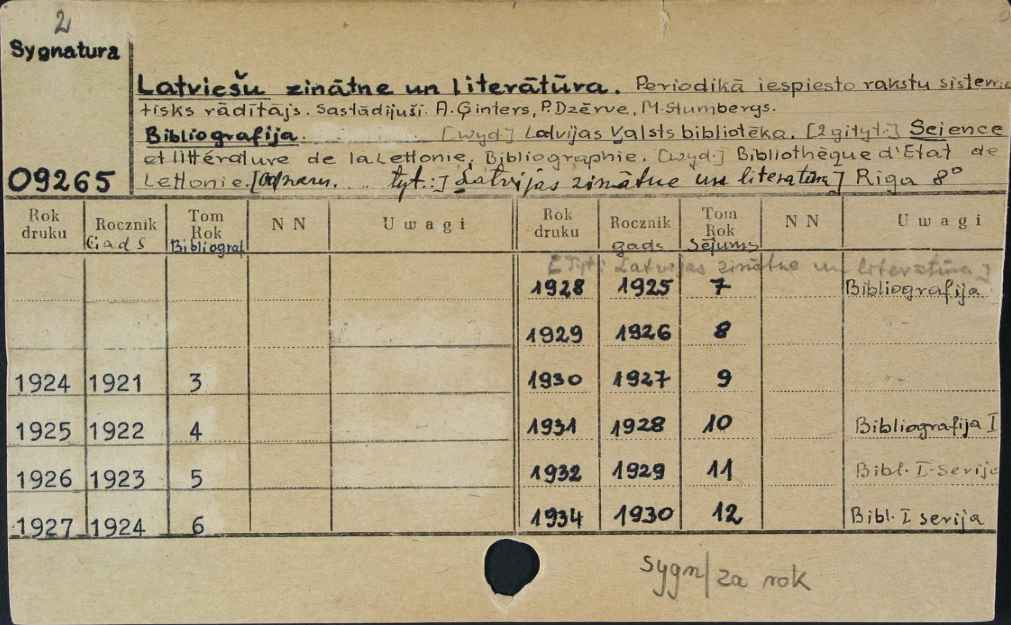 2
Sygnatura
Latviešu zinātne un literātūra. Periodikā iespiesto rakstu sistemā
tisks rādītājs. Sastādījuši: A. Ģinters, P. Dzērve, M. Stumbergs.
Bibliografija. [wyd.] Latvijas Valsts bibliotēka. [2 gi tyt.] Science
et littérature de la Lettonie. Bibliographie. [wyd.] Bibliothèque d'Etat de
09265
Lettonie. tyt.:] Latvijas zinātne un literatūra] Riga 8°
Rok druku Rocznik Tom Rok N N Uwagi Rok druku Rocznik Tom Rok N N Uwagi
Gads Bibliograf gads Sējums
[Tyt: Latvijas zinātne un literatūra]
1928 1925 7 Bibliografija
1929 1926 8
1924 1921 3 1930 1927 9
1925 1922 4 1931 1928 10 Bibliografija I
1926 1923 5 1932 1929 11 Bibl. I-serija
1927 1924 6 1934 1930 12 Bibl. I serija
sygn/za rok